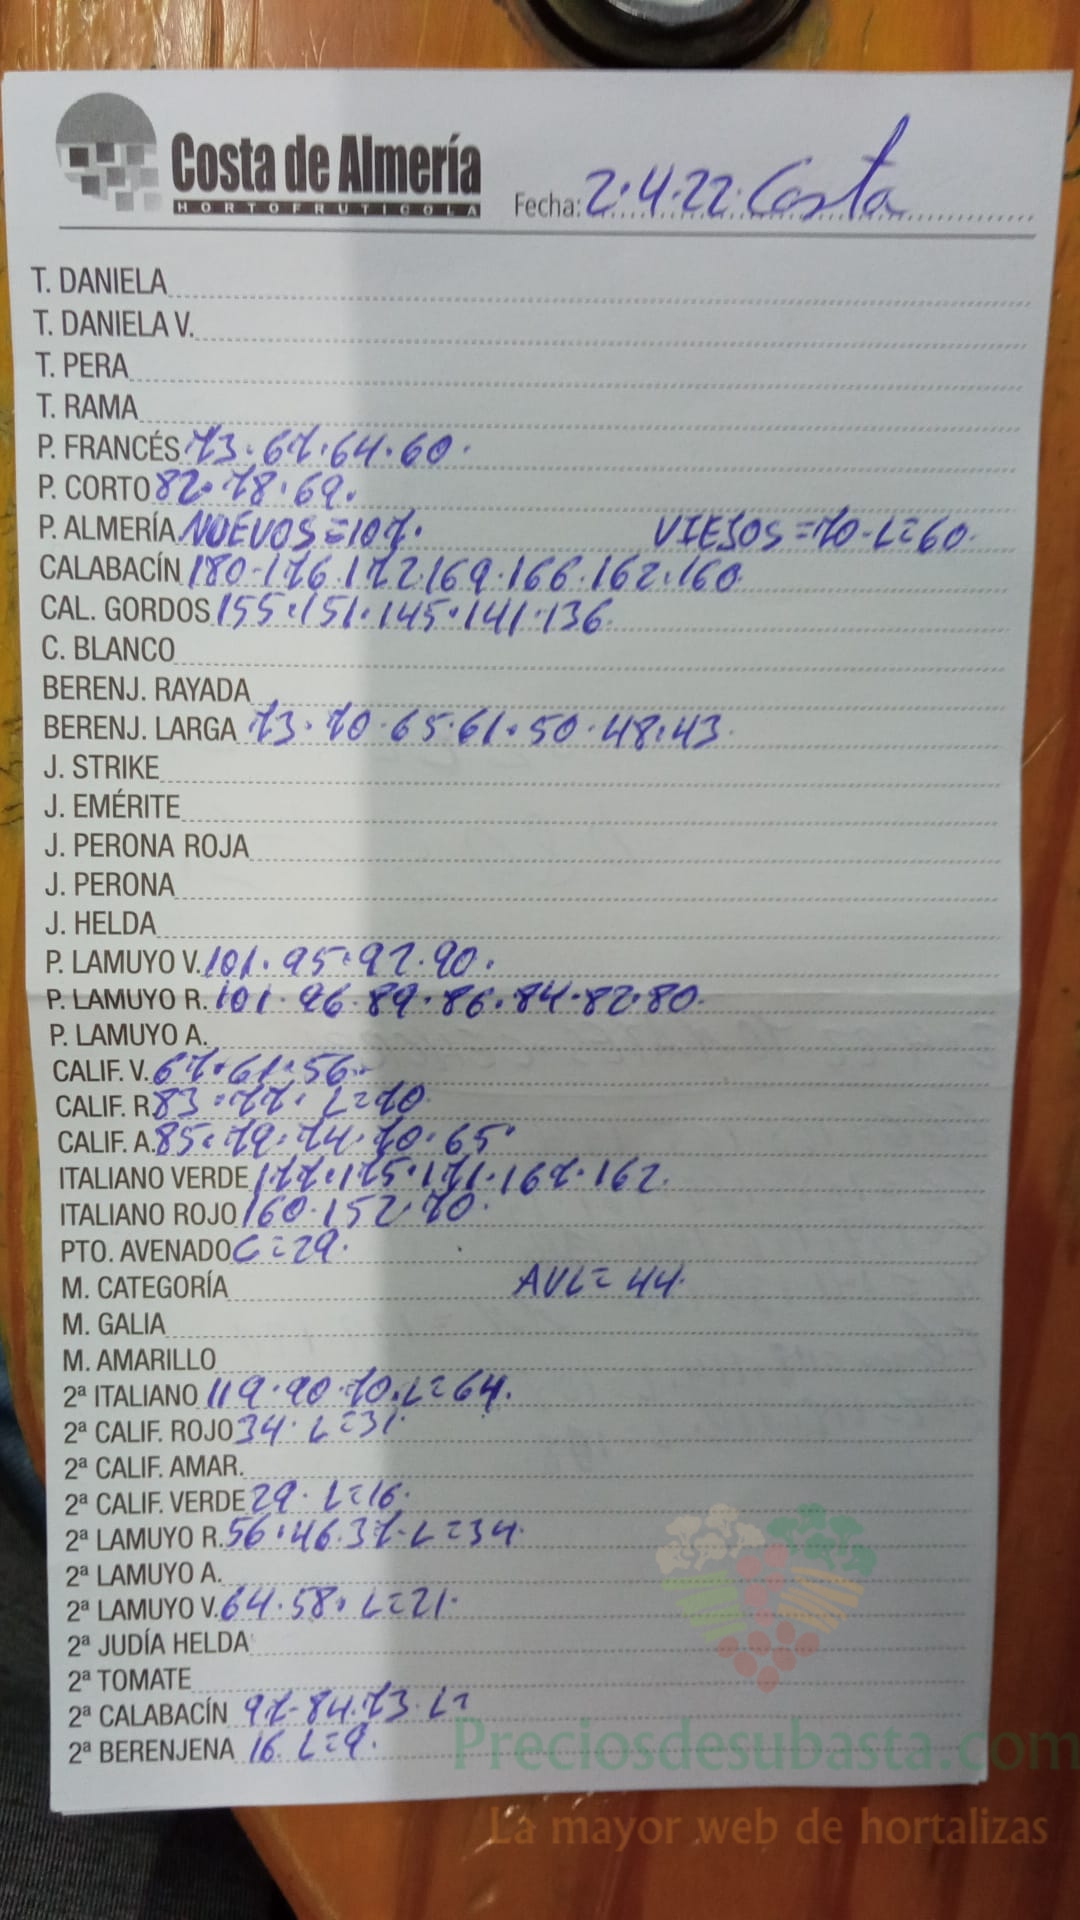 Costa de Almería
HORTOFRUTICOLA
Fecha: 2.4.22. Costa
T. DANIELA
T. DANIELA V.
T. PERA
T. RAMA
P. FRANCÉS 73.67.64.60.
P. CORTO 82.78.69.
P. ALMERÍA NUEVOS=107. VIEJOS=70-L=60.
CALABACÍN 180-176.172.169.166.162.160.
CAL. GORDOS 155.151.145.141.136.
C. BLANCO
BERENJ. RAYADA
BERENJ. LARGA 73.70.65.61.50.48.43.
J. STRIKE
J. EMÉRITE
J. PERONA ROJA
J. PERONA
J. HELDA
P. LAMUYO V. 101.95.92.90.
P. LAMUYO R. 101.96.89.86.84.82.80.
P. LAMUYO A.
CALIF. V. 67.61.56.
CALIF. R 83.77. L=70.
CALIF. A. 85.79.74.70.65.
ITALIANO VERDE 177.175.171.167.162.
ITALIANO ROJO 160.152.70.
PTO. AVENADO C=29.
M. CATEGORÍA AVL=44.
M. GALIA
M. AMARILLO
2ª ITALIANO 119.90.70.L=64.
2ª CALIF. ROJO 34. L=31.
2ª CALIF. AMAR.
2ª CALIF. VERDE 29. L=16.
2ª LAMUYO R. 56.46.37-L=34.
2ª LAMUYO A.
2ª LAMUYO V. 64.58. L=21.
2ª JUDÍA HELDA
2ª TOMATE
2ª CALABACÍN 97-84.73.L=
2ª BERENJENA 16. L=9.
Preciosdesubasta.com
La mayor web de hortalizas